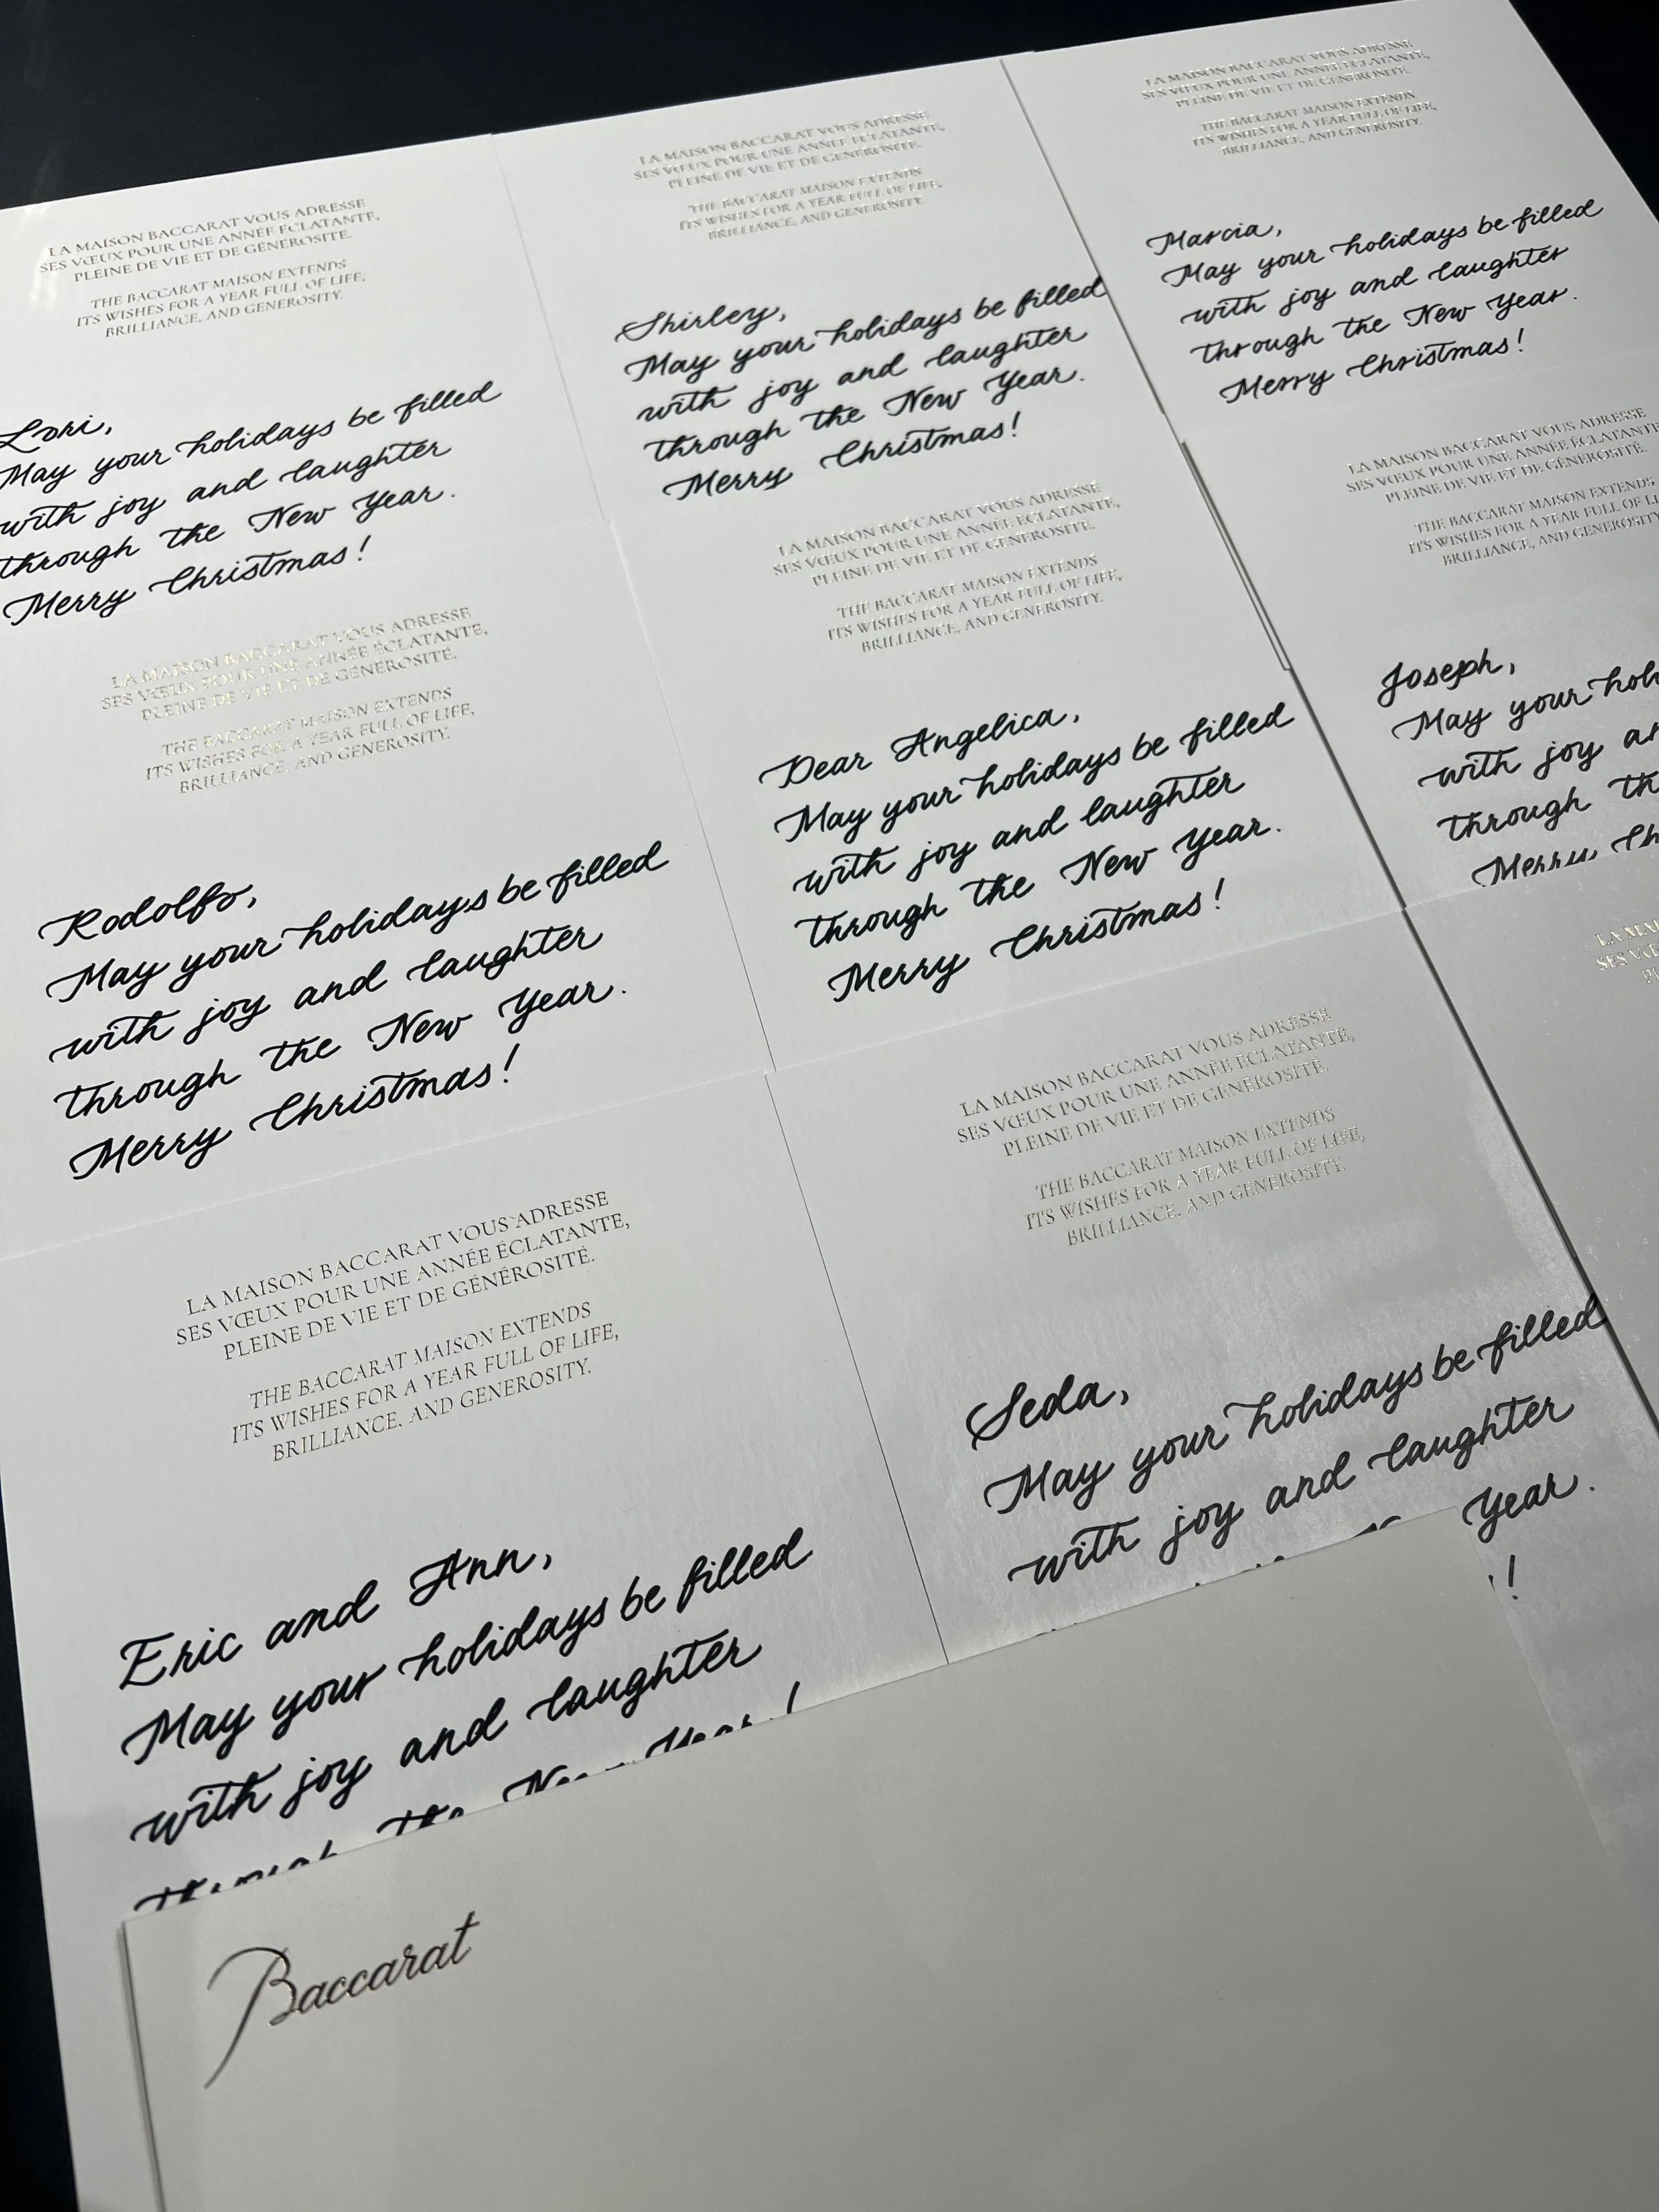 LA MAISON BACCARAT VOUS ADRESSE
SES VŒUX POUR UNE ANNÉE ÉCLATANTE,
PLEINE DE VIE ET DE GÉNÉROSITÉ.
THE BACCARAT MAISON EXTENDS
ITS WISHES FOR A YEAR FULL OF LIFE,
BRILLIANCE, AND GENEROSITY.
Lori,
May your holidays be filled
with joy and laughter
through the New Year.
Merry Christmas!
LA MAISON BACCARAT VOUS ADRESSE
SES VŒUX POUR UNE ANNÉE ÉCLATANTE,
PLEINE DE VIE ET DE GÉNÉROSITÉ.
THE BACCARAT MAISON EXTENDS
ITS WISHES FOR A YEAR FULL OF LIFE,
BRILLIANCE, AND GENEROSITY.
Shirley,
May your holidays be filled
with joy and laughter
through the New Year.
Merry Christmas!
LA MAISON BACCARAT VOUS ADRESSE
SES VŒUX POUR UNE ANNÉE ÉCLATANTE,
PLEINE DE VIE ET DE GÉNÉROSITÉ.
THE BACCARAT MAISON EXTENDS
ITS WISHES FOR A YEAR FULL OF LIFE,
BRILLIANCE, AND GENEROSITY.
Marcia,
May your holidays be filled
with joy and laughter
through the New Year.
Merry Christmas!
LA MAISON BACCARAT VOUS ADRESSE
SES VŒUX POUR UNE ANNÉE ÉCLATANTE,
PLEINE DE VIE ET DE GÉNÉROSITÉ.
THE BACCARAT MAISON EXTENDS
ITS WISHES FOR A YEAR FULL OF LIFE,
BRILLIANCE, AND GENEROSITY.
Rodolfo,
May your holidays be filled
with joy and laughter
through the New Year.
Merry Christmas!
LA MAISON BACCARAT VOUS ADRESSE
SES VŒUX POUR UNE ANNÉE ÉCLATANTE,
PLEINE DE VIE ET DE GÉNÉROSITÉ.
THE BACCARAT MAISON EXTENDS
ITS WISHES FOR A YEAR FULL OF LIFE,
BRILLIANCE, AND GENEROSITY.
Dear Angelica,
May your holidays be filled
with joy and laughter
through the New Year.
Merry Christmas!
LA MAISON BACCARAT VOUS ADRESSE
SES VŒUX POUR UNE ANNÉE ÉCLATANTE
PLEINE DE VIE ET DE GÉNÉROSITÉ.
THE BACCARAT MAISON EXTENDS
ITS WISHES FOR A YEAR FULL OF
BRILLIANCE, AND GENEROSITY
Joseph,
May your
with joy
through
Merry
LA MAISON BACCARAT VOUS ADRESSE
SES VŒUX POUR UNE ANNÉE ÉCLATANTE,
PLEINE DE VIE ET DE GÉNÉROSITÉ.
THE BACCARAT MAISON EXTENDS
ITS WISHES FOR A YEAR FULL OF LIFE,
BRILLIANCE, AND GENEROSITY.
Eric and Ann,
May your holidays be filled
with joy and laughter
through the New Year!
LA MAISON BACCARAT VOUS ADRESSE
SES VŒUX POUR UNE ANNÉE ÉCLATANTE,
PLEINE DE VIE ET DE GÉNÉROSITÉ.
THE BACCARAT MAISON EXTENDS
ITS WISHES FOR A YEAR FULL OF LIFE,
BRILLIANCE, AND GENEROSITY.
Seda,
May your holidays be filled
with joy and laughter
Year.
!
Baccarat